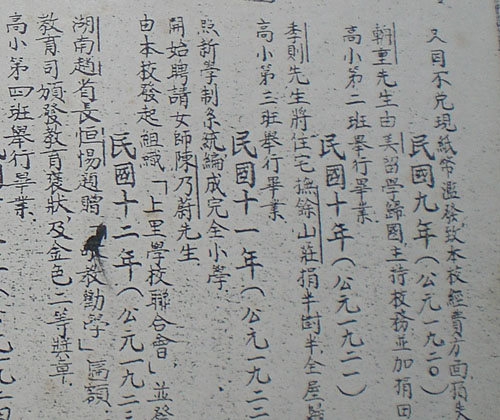 又因不兌現紙幣濫發致本校經費方面損失
民國九年(公元一九二〇)
軒重先生由美留學歸國主持校務並加捐田
高小第二班舉行畢業
民國十年(公元一九二一)
季則先生將住宅撫餘山莊捐半對半全屋
高小第三班舉行畢業
民國十一年(公元一九二二
照新學制系統編成完全小學
開始聘請女師陳乃蔚先生
由本校發起組織「上里學校聯合會」並發
民國十二年(公元一九二
湖南趙省長恒惕題贈 教勸學」匾額
教育司頒發教育褒狀及金色二等獎章
高小第四班舉行畢業